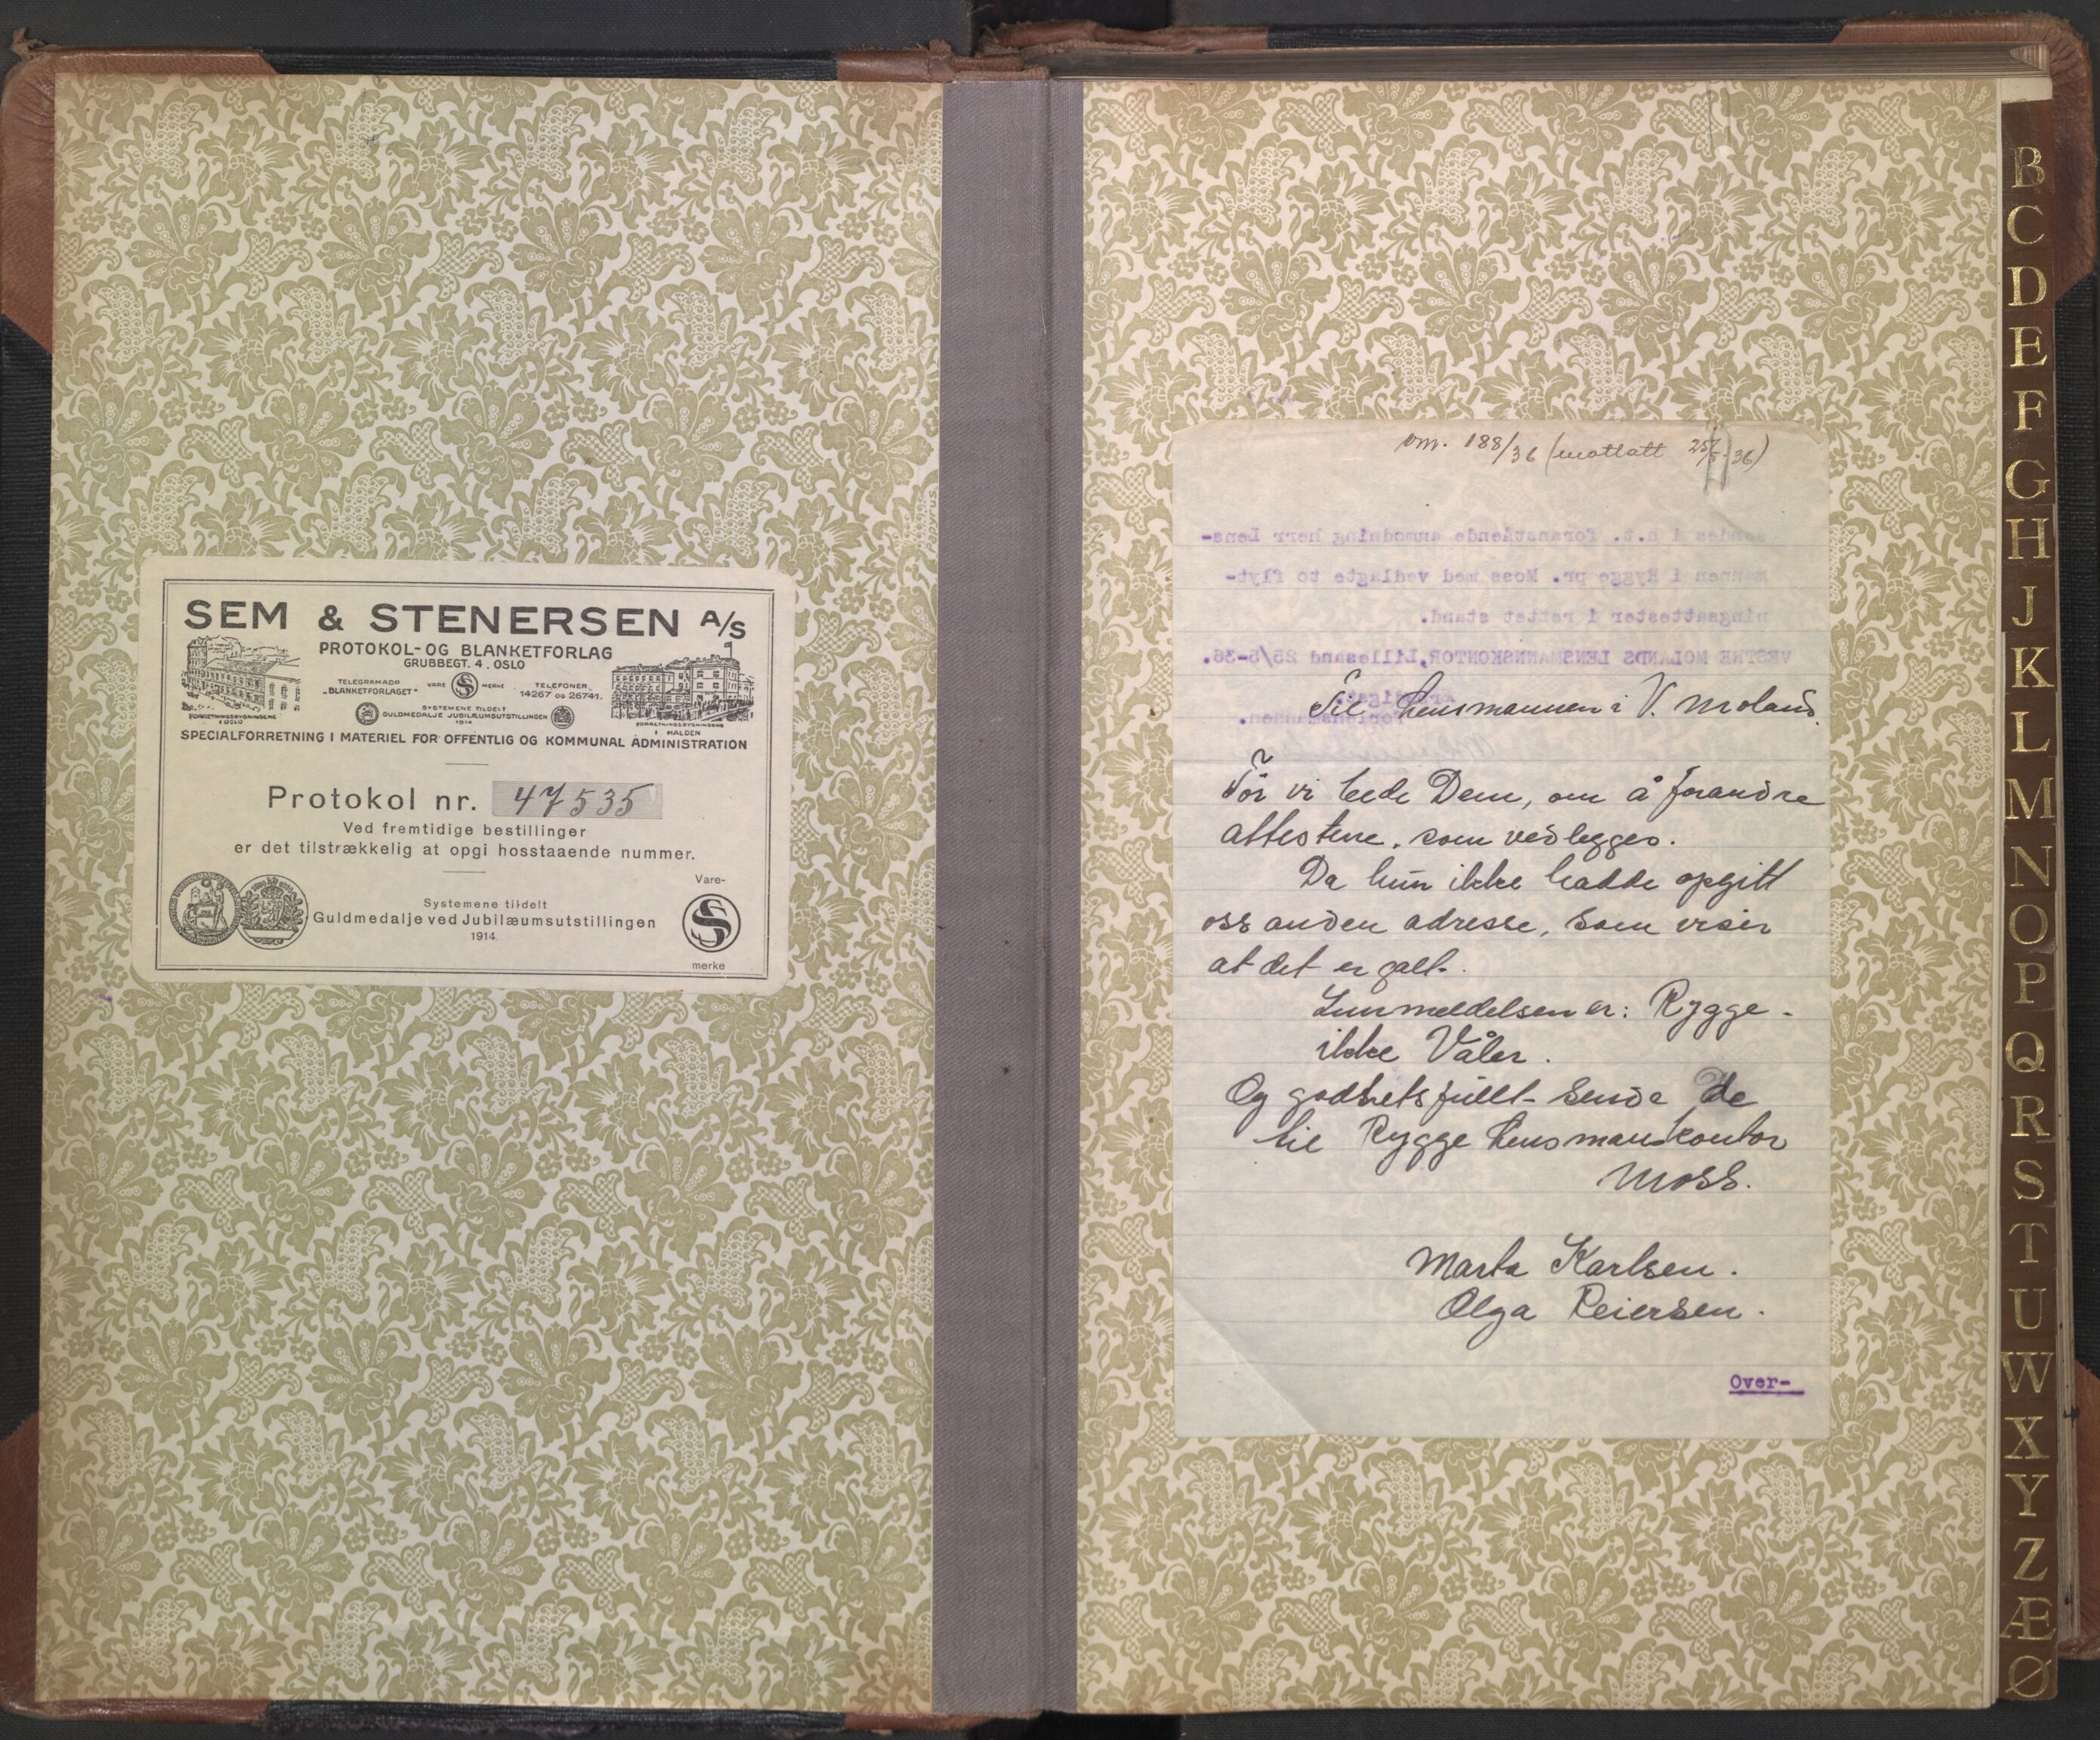 SEM & STENERSEN A/S
PROTOKOL- OG BLANKETFORLAG
GRUBBEGT. 4. OSLO
TELEGRAMADR. „BLANKETFORLAGET"
VARE S MERKE
TELEFONER. 14267 OG 26741.
SYSTEMENE TILDELT
GULDMEDALJE JUBILÆUMSUTSTILLINGEN
1914
FORRETNINGSBYGNINGENE I OSLO
FORRETNINGSBYGNINGENE I HALDEN
SPECIALFORRETNING I MATERIEL FOR OFFENTLIG OG KOMMUNAL ADMINISTRATION
Protokol nr. 47535
Ved fremtidige bestillinger
er det tilstrækkelig at opgi hosstaaende nummer.
Systemene tildelt
Guldmedalje ved Jubilæumsutstillingen
1914.
Vare-
S
merke
om. 188/36 (mottatt 25/5-36)
sendes i h.t. foranstående anmodning herr Lens-
mannen i Rygge pr. Moss med vedlagte to flyt-
ningsattester i rettet stand.
VESTRE MOLANDS LENSMANNSKONTOR, Lillesand 25/5-36.
Til Lensmannen i V. Moland.
Tör vi bede Dem, om å forandre
attestene, som vedlegges.
Da hun ikke hadde opgitt
oss anden adresse, som viser
at det er galt.
Innmeldelsen er: Rygge -
ikke Våler.
Og godhetsfullt sende de
til Rygge Lensmanskontor
Moss.
Marta Karlsen.
Olga Reiersen.
Over-
B
C
D
E
F
G
H
J
K
L
M
N
O
P
Q
R
S
T
U
W
X
Y
Z
Æ
Ø